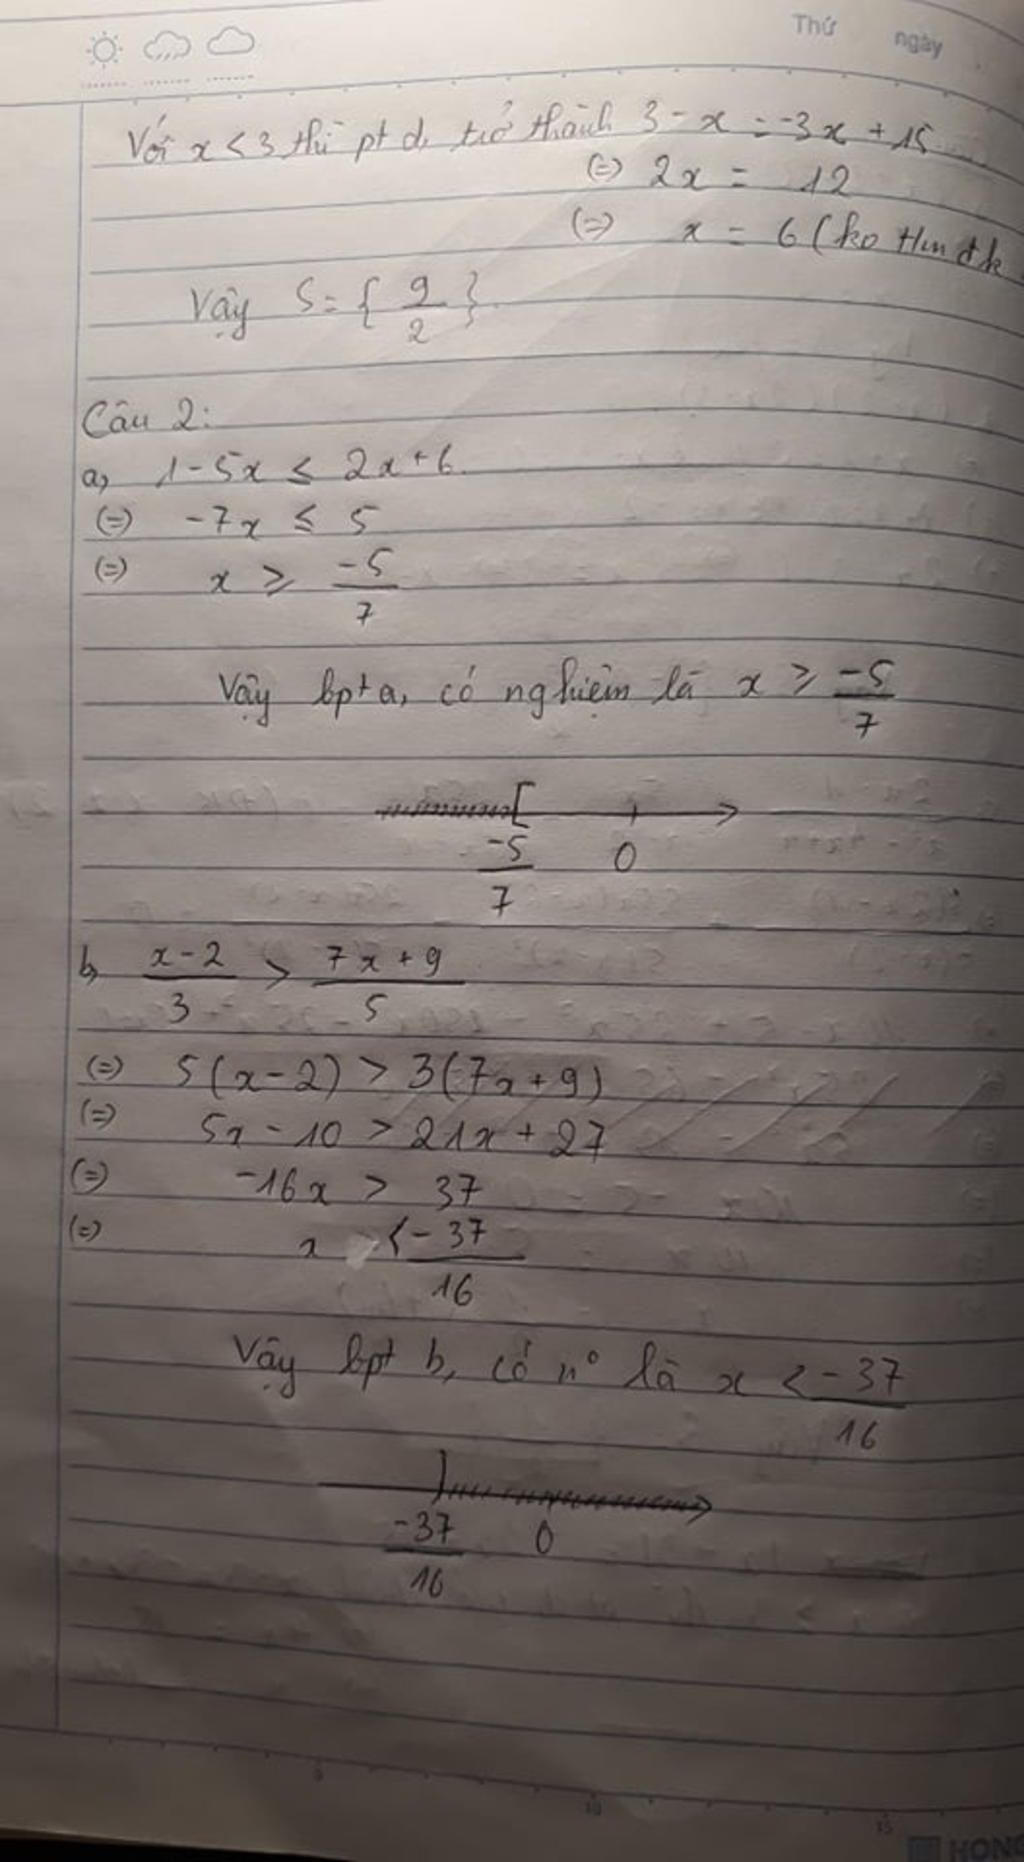 Thứ ngày
Với x < 3 thì pt d, trở thành 3 - x = -3x + 15
(=) 2x = 12
(=) x = 6 (ko thm đk
Vậy S = { 9/2 }
Câu 2:
a, 1 - 5x ≤ 2x + 6
(=) -7x ≤ 5
(=) x ≥ -5/7
Vậy bpt a, có nghiệm là x ≥ -5/7
-5/7 0
b, x-2/3 > 7x+9/5
(=) 5(x-2) > 3(7x+9)
(=) 5x - 10 > 21x + 27
(=) -16x > 37
(=) x < -37/16
Vậy bpt b, có n° là x < -37/16
-37/16 0
5 10 15
HONG